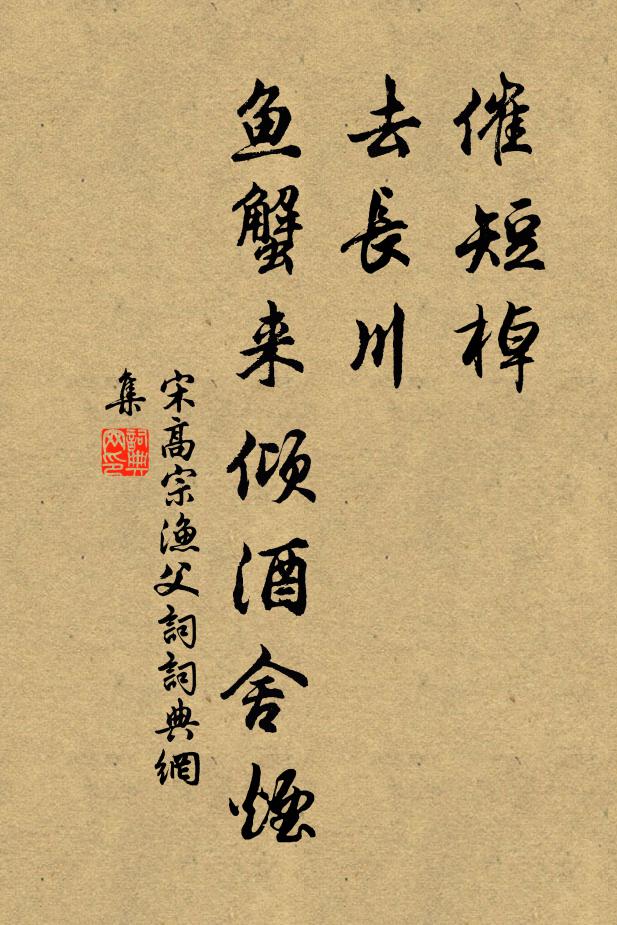 催短棹
去長川
鱼蟹来倾酒舍煙
宋高宗渔父詞詞典網
集
詞典網印